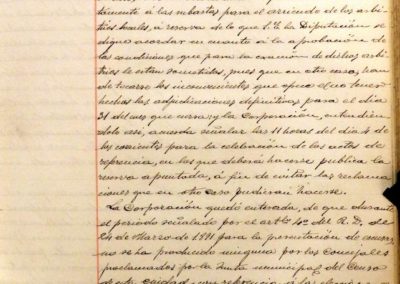 tamente á las subastas para el arriendo de los arbi-
trios locales, á reserva de lo que S. E. la Diputación se
digne acordar en cuanto á la aprobación de
las condiciones que para la exacción de dichos arbi-
trios le están sometidas, pues en otro caso, han
de tocarse los inconvenientes que ofrece el no tener
hechas las adjudicaciones definitivas para el dia
31 del mes que cursa, y la Corporación, entendien-
dolo asi, acuerda señalar las 11 horas del dia 4 de
los corrientes para la celebración de los actos de
referencia, en los que deberá hacerse publica la
reserva apuntada, á fin de evitar las reclama-
ciones que en otro caso pudieran hacerse.
La Corporación quedó enterada, de que durante
el periodo señalado por el artº 4º del R. D. de
24 de Marzo de 1891 para la presentación de
no se ha producido ninguna por los Concejales
proclamados por la Junta municipal del Censo
de esta ciudad, con referencia á las